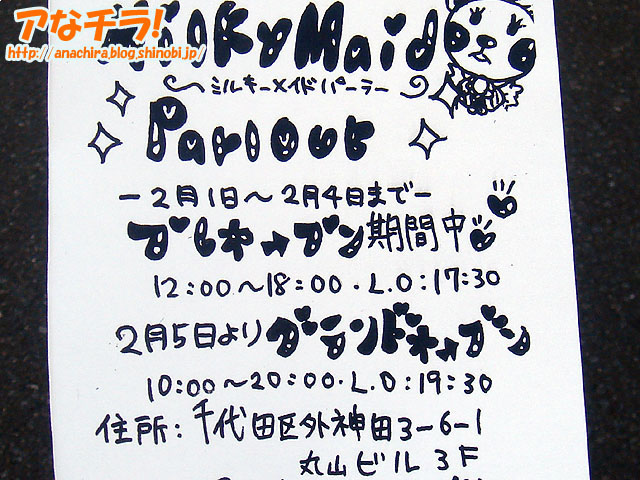 アなチラ!
http://anachira.blog.shinobi.jp/
MilkyMaid
〜ミルキーメイドパーラー〜
Parlour
ー2月1日〜2月4日までー
プレオープン期間中
12:00〜18:00・L.O:17:30
2月5日よりグランドオープン
10:00〜20:00・L.O:19:30
住所:千代田区外神田3-6-1
丸山ビル 3F